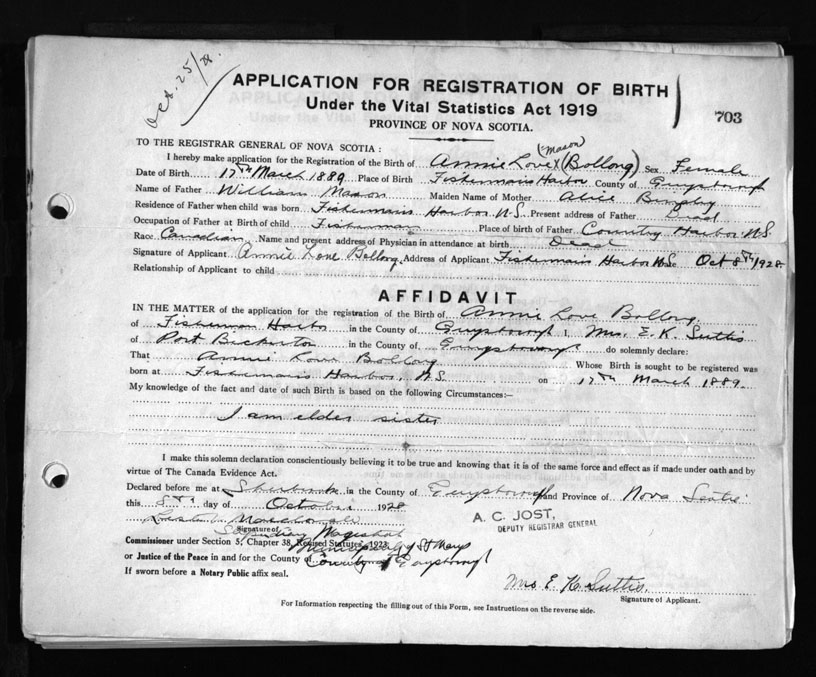 Oct. 25/28
APPLICATION FOR REGISTRATION OF BIRTH
Under the Vital Statistics Act 1919
PROVINCE OF NOVA SCOTIA.
703
TO THE REGISTRAR GENERAL OF NOVA SCOTIA:
(Mason)
I hereby make application for the Registration of the Birth of Annie Love (Bollong) Sex Female
Date of Birth 17th March 1889 Place of Birth Fishermans Harbor County of Guysborough
Name of Father William Mason Maiden Name of Mother Alice
Residence of Father when child was born Fishermans Harbor N.S. Present address of Father Dead
Occupation of Father at Birth of child Fisherman Place of birth of Father Country Harbor N.S.
Race Canadian Name and present address of Physician in attendance at birth Dead
Signature of Applicant Annie Love Bollong Address of Applicant Fishermans Harbor N.S. Date Oct 8th/1928
Relationship of Applicant to child
AFFIDAVIT
IN THE MATTER of the application for the registration of the Birth of Annie Love Bollong
of Fisherman Harbor in the County of Guysborough I, Mrs. E. K. Suttis
of Port Bickerton in the County of Guysborough do solemnly declare:
That Annie Love Bollong Whose Birth is sought to be registered was
born at Fishermans Harbor, N.S. on 17th March 1889.
My knowledge of the fact and date of such Birth is based on the following Circumstances:—
I am elder sister
I make this solemn declaration conscientiously believing it to be true and knowing that it is of the same force and effect as if made under oath and by
virtue of The Canada Evidence Act.
Declared before me at Sherbrooke in the County of Guysborough and Province of Nova Scotia
this 8th day of October 1928
A. C. JOST,
DEPUTY REGISTRAR GENERAL
Signature of
Stipendiary Magistrate
Commissioner under Section 5, Chapter 38, Revised Statutes, 1923
Municipality of St Marys
or Justice of the Peace in and for the County of County of Guysborough
If sworn before a Notary Public affix seal.
Mrs E. K. Suttis.
Signature of Applicant.
For Information respecting the filling out of this Form, see Instructions on the reverse side.